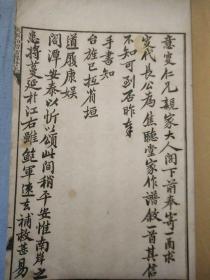 意叟仁兄親家大人閣下前奉寄一函求
代長公為焦聽堂家作譜敘一首其信
不知可到否昨奉
手書知
台旌已拉省垣
道履康娱
閤潭安泰以忻以頌此間稍平安惟南岸之
患將蔓延於江右雖鮭軍速去補救甚易